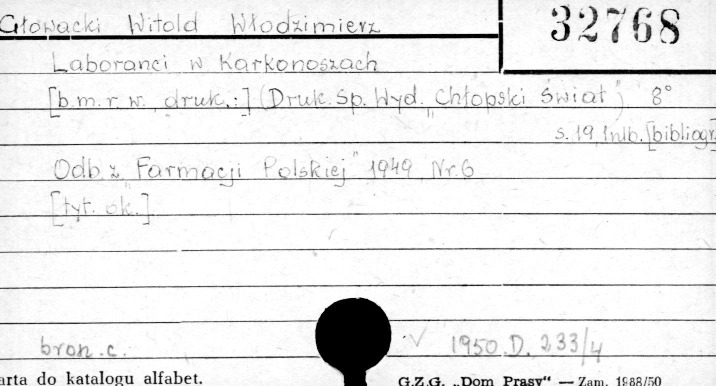 Głowacki Witold Włodzimierz
32768
Laboranci w Karkonoszach
[b.m.r.w. druk.:] (Druk. Sp. Wyd. "Chłopski Świat") 8°
s. 19, 1nlb. [bibliogr
Odb. z "Farmacji Polskiej" 1949 Nr. 6
[tyt. ok.]
bron. c.
1950. D. 233/4
arta do katalogu alfabet.
G.Z.G. „Dom Prasy“ — Zam. 1988/50